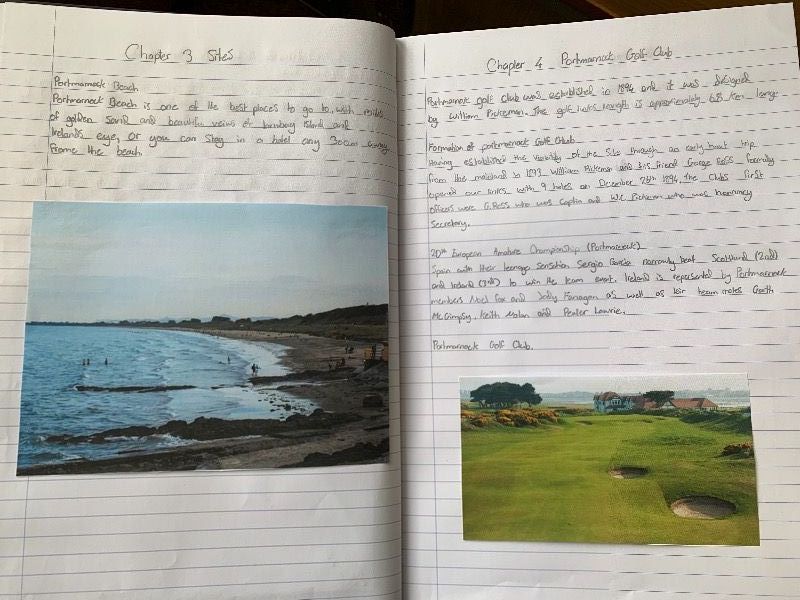 Chapter 3 Sites
Portmarnock Beach
Portmarnock Beach is one of the best places to go to, with miles
of golden sand and beautiful veiws of lambay Island and
Irelands eye, or you can stay in a hotel only 300m away
frome the beach.
Chapter 4 Portmarnock Golf Club
Portmarnock golf Club was established in 1894 and it was designed
by William Pickeman. The golf links length is approximately 6.8 Km long.
Formation of portmarnock Golf Club
Having established the viability of the site through an early boat trip
from the mainland in 1893, William Pickeman and his friend George Ross formally
opened our links with 9 holes on December 26th 1894, the Clubs first
officers were G.Ross who was Captin and W.C. Pickeman who was honorary
Secretary.
20th European Amature Championship (Portmarnock)
Spain with their teenage sensation Sergio Garcia narrowly beat Scotland (2nd)
and Ireland (3rd) to win the team event. Ireland is represented by Portmarnock
members Noel Fox and Jody Fanagan as well as their team mates Garth
McGimpsy, Keith Nolan and Peater Lawrie.
Portmarnock Golf Club.